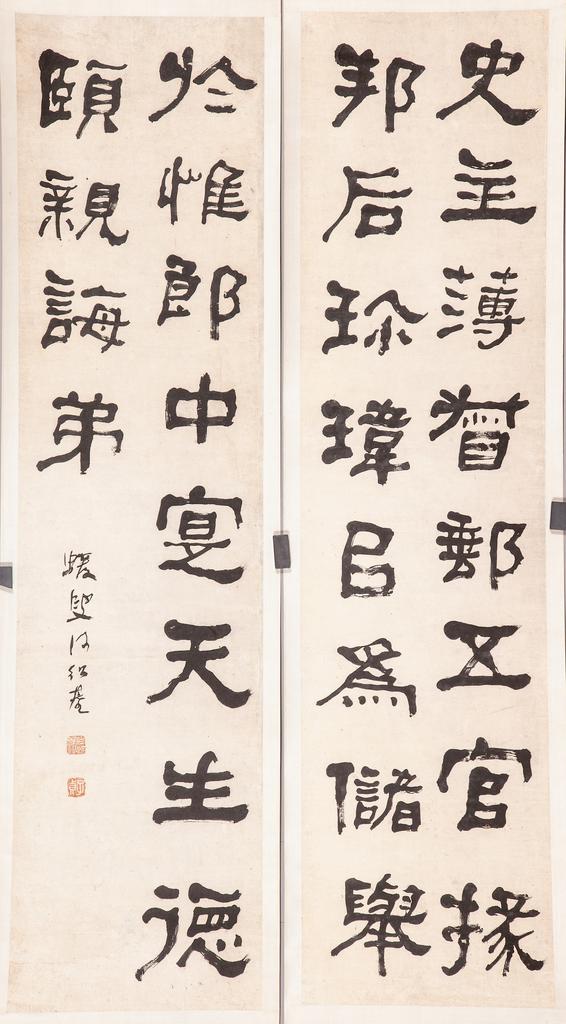 史主薄督郵五官掾
邦后珍瑋㠯爲儲舉
於惟郎中寔天生德
頤親誨弟
蝯叟何紹基